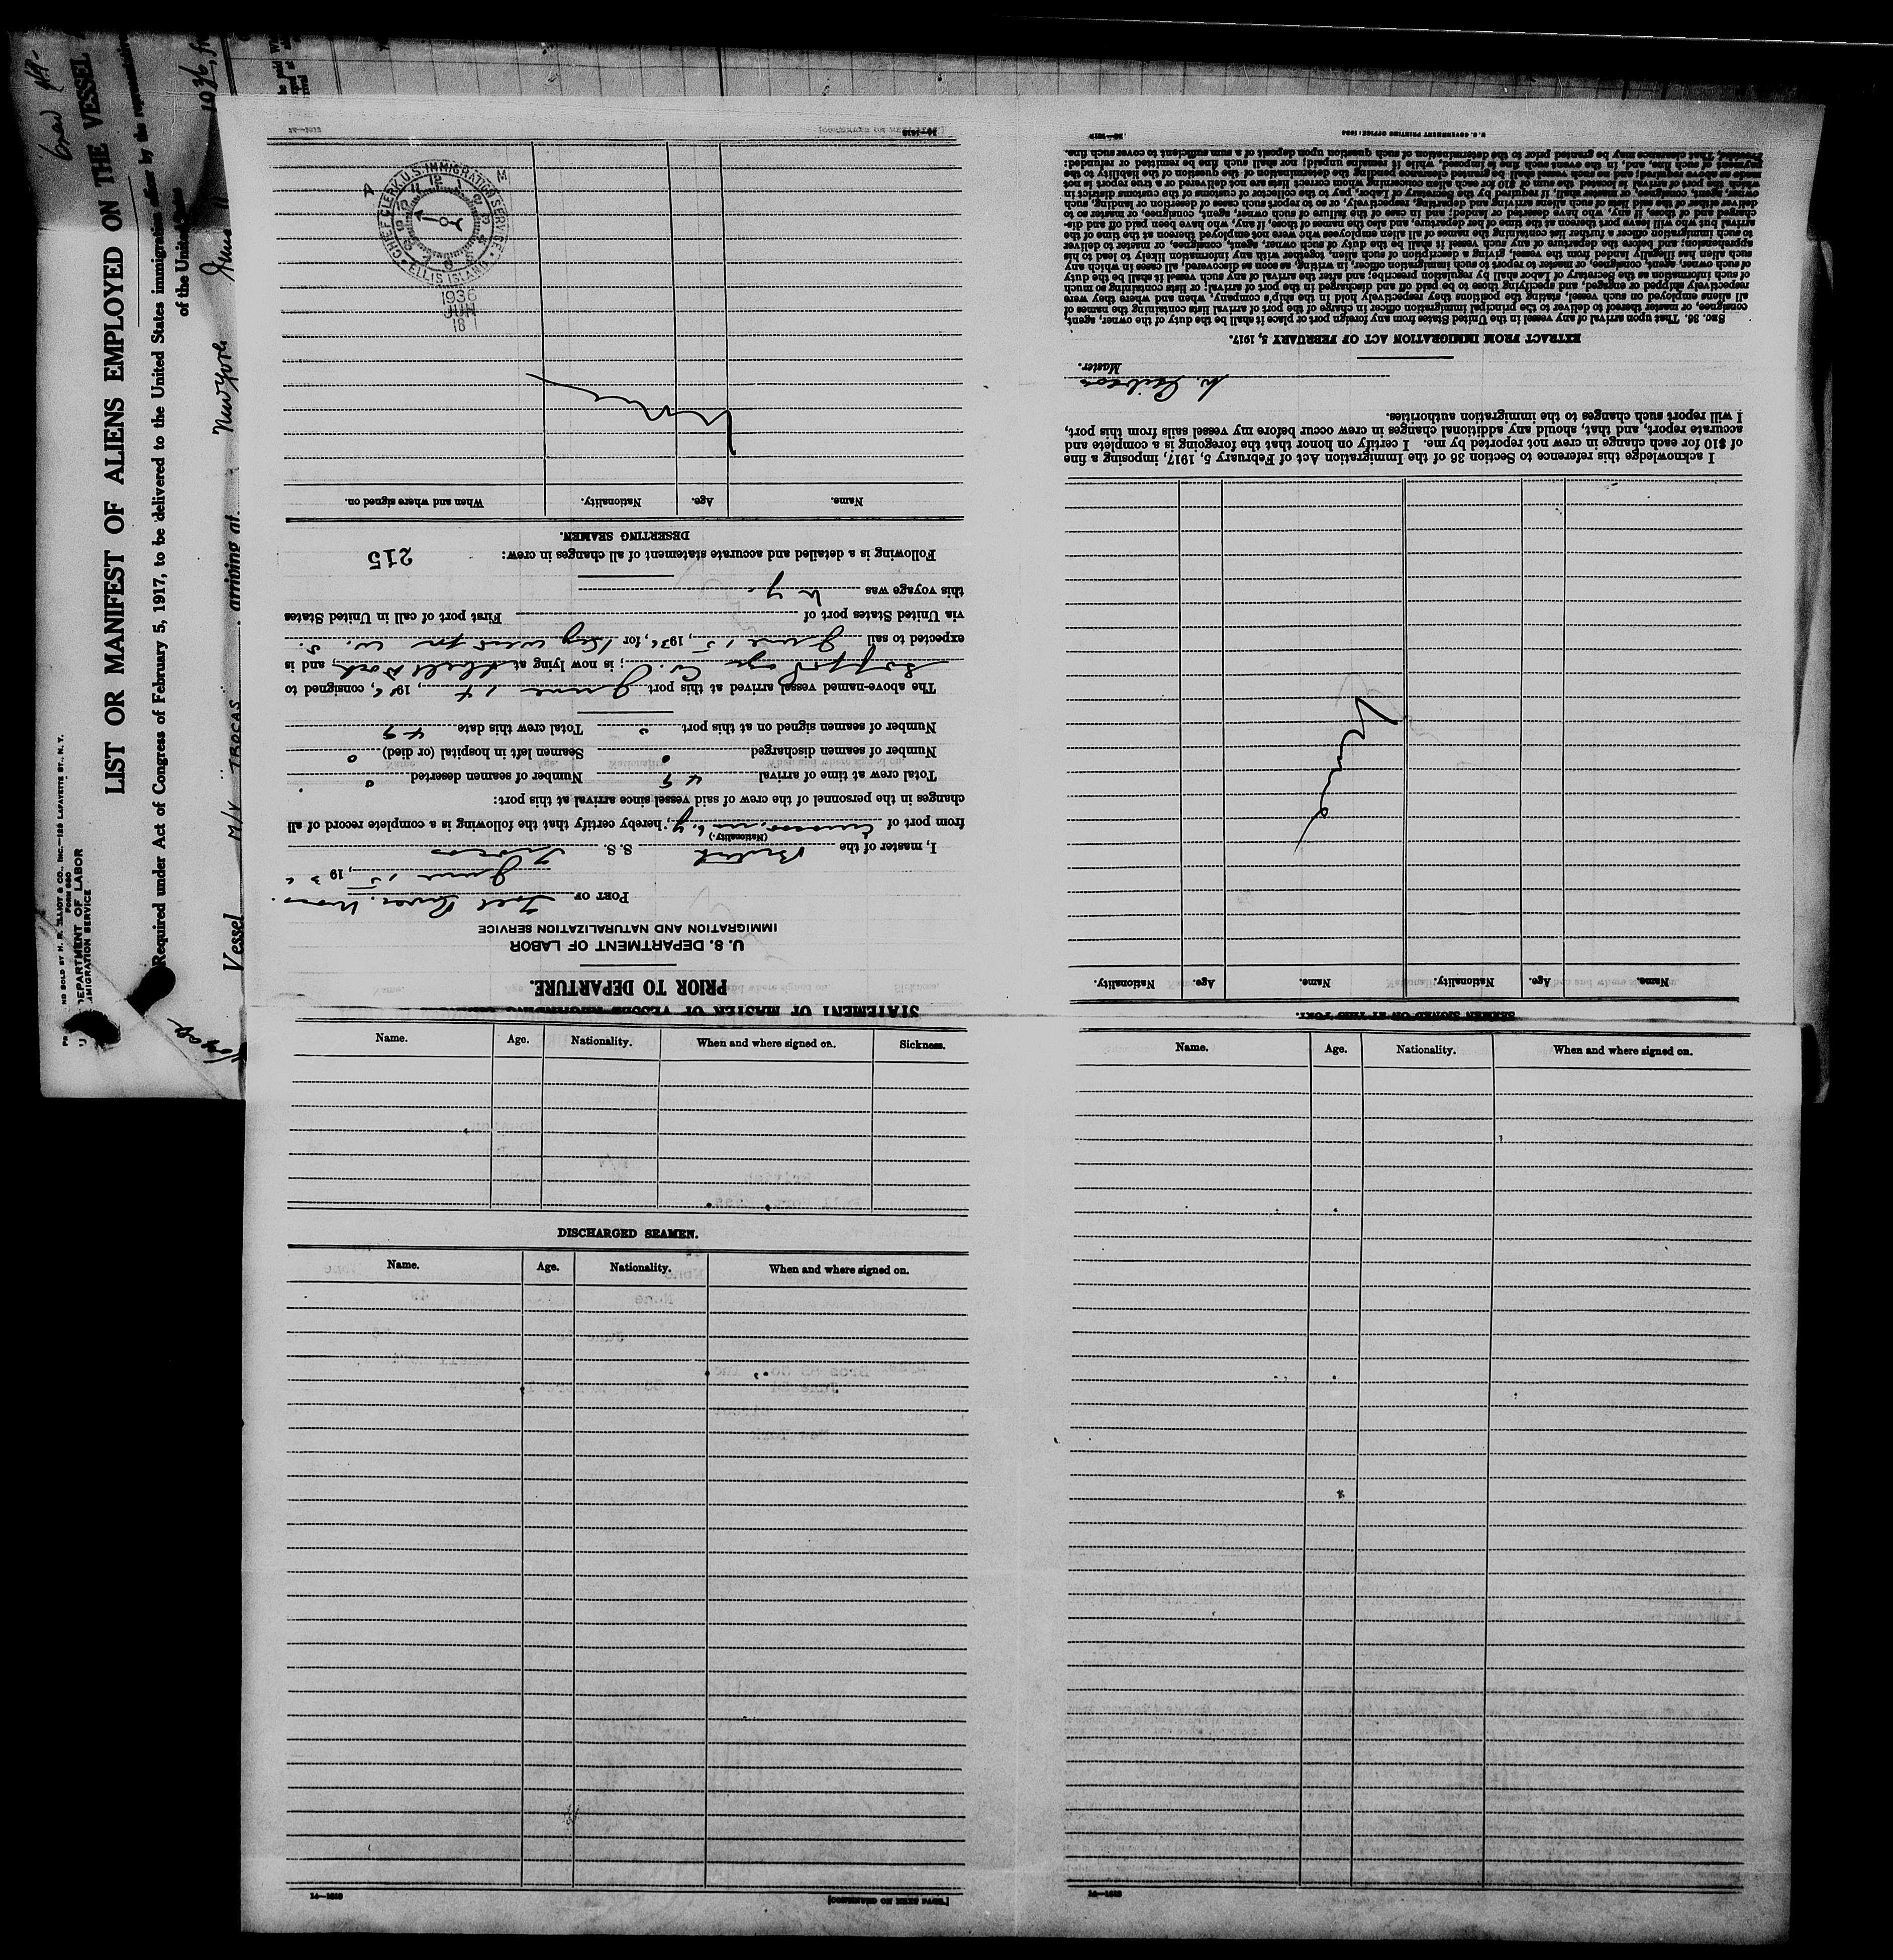 LIST OR MANIFEST OF ALIENS EMPLOYED ON THE VESSEL
Required under Act of Congress of February 5, 1917, to be delivered to the United States immigration officer by the representative
of the United States
Vessel M/V TROCAS arriving at New York
ND SOLD BY H. B. ELLIOT & CO., INC.—128 LAFAYETTE ST., N. Y.
DEPARTMENT OF LABOR
IMMIGRATION SERVICE
STATEMENT OF MASTER OF VESSEL REGARDING
PRIOR TO DEPARTURE.
U. S. DEPARTMENT OF LABOR
IMMIGRATION AND NATURALIZATION SERVICE
PORT OF Fall River, Mass.
June 15, 1936
I, master of the British S. S. Trocas
(Nationality.)
from port of hereby certify that the following is a complete record of all
changes in the personnel of the crew of said vessel since arrival at this port:
Total crew at time of arrival 49 Number of seamen deserted 0
Number of seamen discharged 0 Seamen left in hospital (or died) 0
Number of seamen signed on at this port Total crew this date 49
The above-named vessel arrived at this port June 14, 1936, consigned to
; is now lying at Shell Dock, and is
expected to sail June 15, 1936, for
via United States port of First port of call in United States
this voyage was N. Y.
Following is a detailed and accurate statement of all changes in crew: 215
DESERTING SEAMEN.
Name. Age. Nationality. When and where signed on.
None
CHIEF CLERK U.S. IMMIGRATION SERVICE
ELLIS ISLAND
A M
1936
JUN
18
14—1613
Name. Age. Nationality. When and where signed on. Sickness.
DISCHARGED SEAMEN.
Name. Age. Nationality. When and where signed on.
14—1613 [CONTINUED ON NEXT PAGE.]
SEAMEN SIGNED ON AT THIS PORT.
Name. Age. Nationality. Name. Age. Nationality.
None
I acknowledge this reference to Section 36 of the Immigration Act of February 5, 1917, imposing a fine
of $10 for each change in crew not reported by me. I certify on honor that the foregoing is a complete and
accurate report, and that, should any additional changes in crew occur before my vessel sails from this port,
I will report such changes to the immigration authorities.
Master.
EXTRACT FROM IMMIGRATION ACT OF FEBRUARY 5, 1917.
SEC. 36. That upon arrival of any vessel in the United States from any foreign port or place it shall be the duty of the owner, agent,
consignee, or master thereof to deliver to the principal immigration officer in charge of the port of arrival lists containing the names of
all aliens employed on such vessel, stating the positions they respectively hold in the ship's company, when and where they were
respectively shipped or engaged, and specifying those to be paid off and discharged in the port of arrival; or lists containing so much
of such information as the Secretary of Labor shall by regulation prescribe; and after the arrival of any such vessel it shall be the duty
of such owner, agent, consignee, or master to report to such immigration officer, in writing, as soon as discovered, all cases in which any
such alien has illegally landed from the vessel, giving a description of such alien, together with any information likely to lead to his
apprehension; and before the departure of any such vessel it shall be the duty of such owner, agent, consignee, or master to deliver
to such immigration officer a further list containing the names of all alien employees who were not employed thereon at the time of the
arrival but who will leave port thereon at the time of her departure, and also the names of those, if any, who have been paid off and dis-
charged and of those, if any, who have deserted or landed; and in case of the failure of such owner, agent, consignee, or master so to
deliver either of the said lists of such aliens arriving and departing, respectively, or so to report such cases of desertion or landing, such
owner, agent, consignee, or master shall, if required by the Secretary of Labor, pay to the collector of customs of the customs district in
which the port of arrival is located the sum of $10 for each alien concerning whom correct lists are not delivered or a true report is not
made as above required; and no such vessel shall be granted clearance pending the determination of the question of the liability to the
payment of such fine, and, in the event such fine is imposed, while it remains unpaid; nor shall such fine be remitted or refunded:
Provided, That clearance may be granted prior to the determination of such question upon deposit of a sum sufficient to cover such fine.
U. S. GOVERNMENT PRINTING OFFICE: 1934
Name. Age. Nationality. When and where signed on.
14—1613